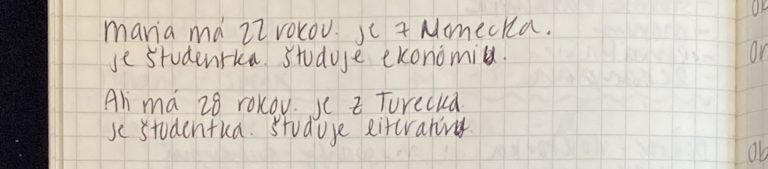 Maria má 22 rokov. je z Nemecka.
je študentka. študuje ekonómiu.
Ali má 28 rokov. je z Turecka.
je študentka. študuje literatúru.